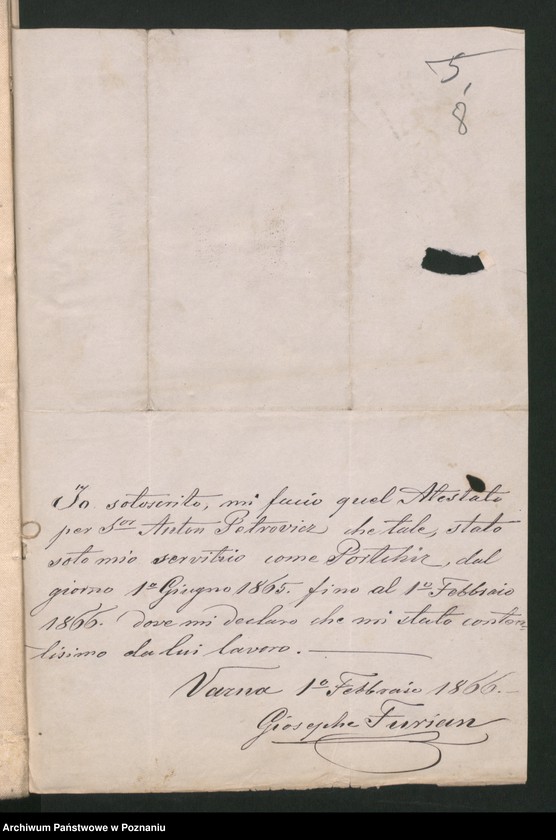 5
8
Io sotoscrito, mi facio quel Atestato
per S.or Anton Petrovicz che tale, stato
soto mio servitzio come Portchir, dal
giorno 1º Giugno 1865. fino al 1º Febbraio
1866. dove mi declaro che mi stato conten-
tisimo da lui lavoro.
Varna 1º Febbraio 1866.
Giosephe Furian
Archiwum Państwowe w Poznaniu